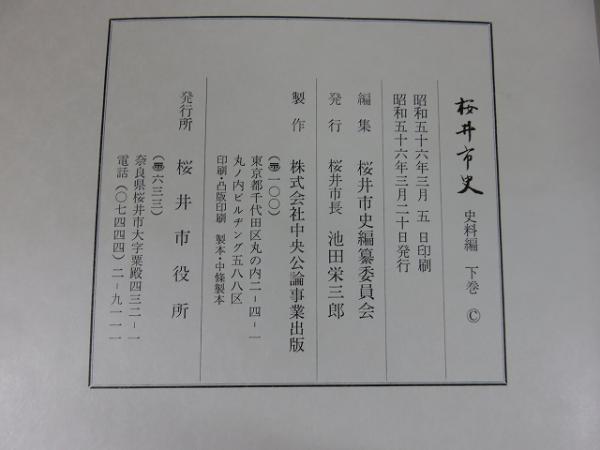 桜井市史 史料編 下巻 ©
昭和五十六年三月 五 日印刷
昭和五十六年三月二十日発行
編集 桜井市史編纂委員会
発行 桜井市長 池田栄三郎
製作 株式会社中央公論事業出版
(〠一〇〇)
東京都千代田区丸の内二-四-一
丸ノ内ビルヂング五八八区
印刷・凸版印刷 製本・中條製本
発行所 桜井市役所
(〠六三三)
奈良県桜井市大字粟殿四三二-一
電話(〇七四四四)二-九一一一